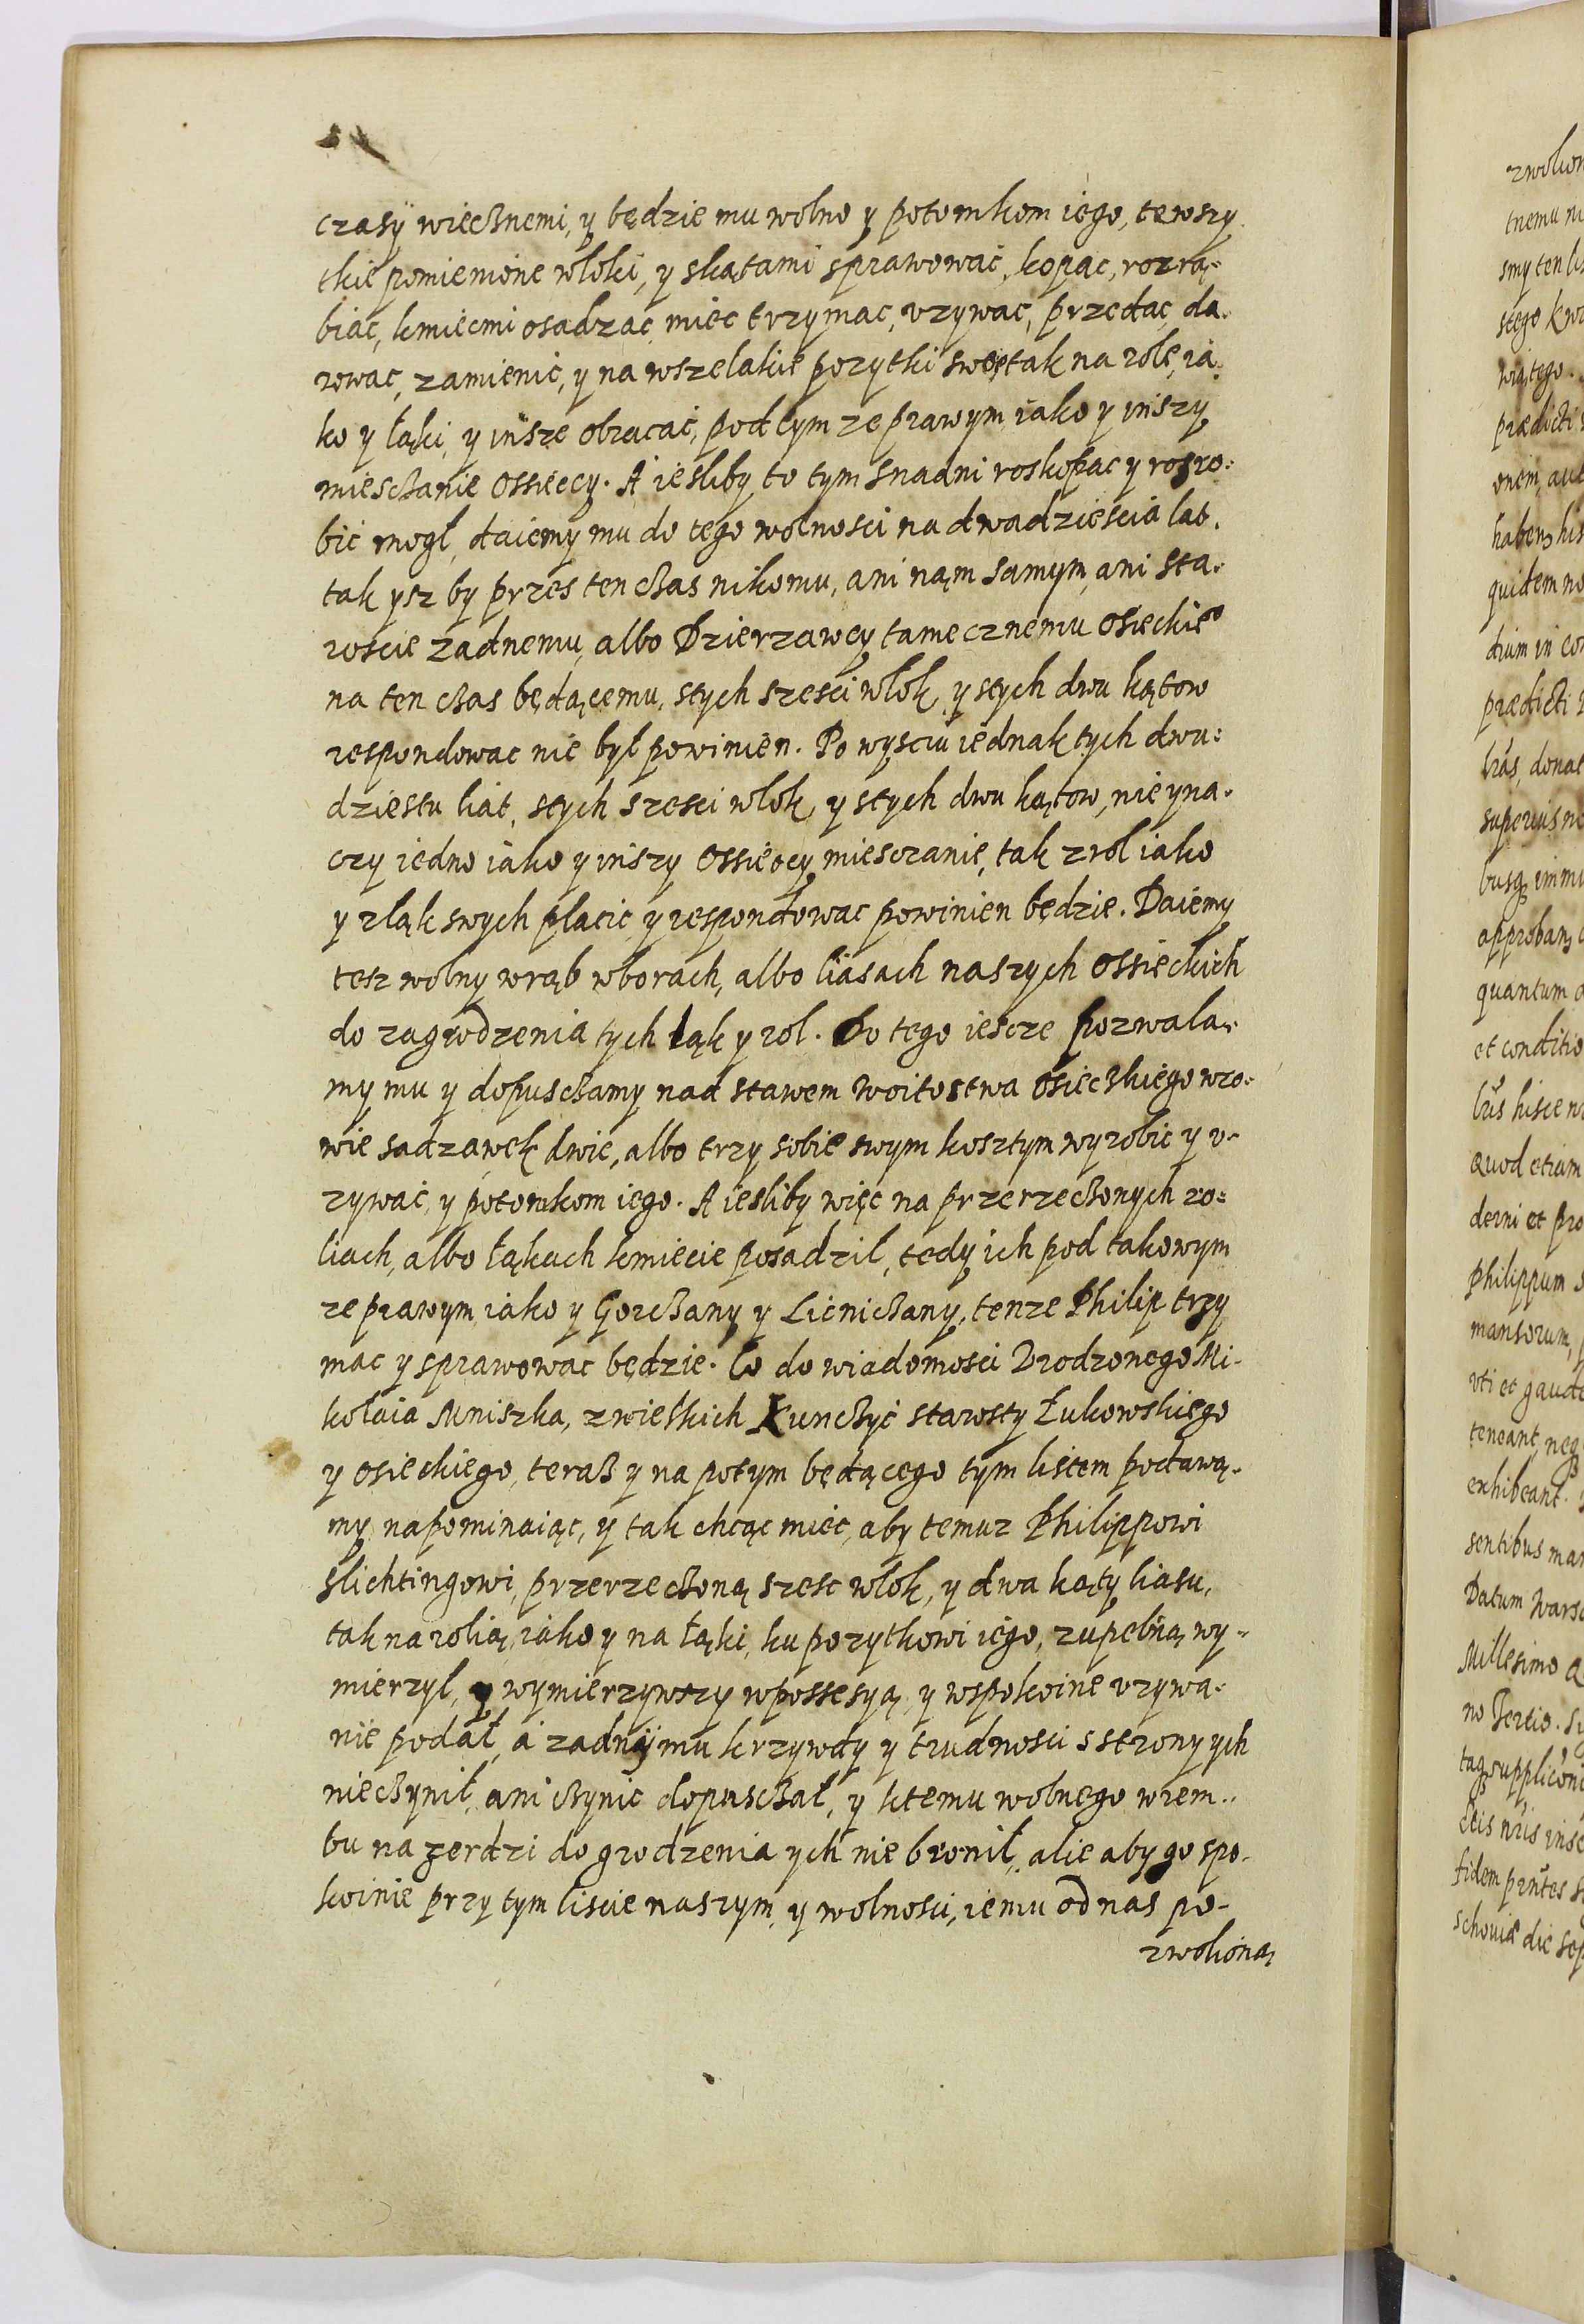 czasÿ wiecznemi, y będzie mu wolno y potomkom iego, te wszy
tkie pomienione wloki, y s kątami sprawowac, kopac, rozrą-
biac, kmiecmi osadzac miec trzymac, vzywac, przedac, da-
rowac, zamienic, y na wszelakie pozytki swoie tak na role, ia-
ko y łąki, y insze obracac, pod tym ze prawym iako y inszy
miesczanie Ossieccy. A iesliby to tym snadni roskopac y rosro-
bic mogł, daiemy mu do tego wolnosci na dwadziescia lat.
tak ysz by przes ten czas nikomu, ani nąm samym, ani sta-
roscie żadnemu, albo Dzierzawcy tamecznemu Osieckieo
na ten czas będącemu, s tych szesci wlok, y s tych dwu kątow
respondowac nie był powinien. Po wysciu iednak tych dwu-
dziestu liat, s tych szesci wlok, y s tych dwu kątow, nie yna-
czy iedno iako y inszy Ossieccy miesczanie, tak z rol iako
y z ląk swych placic, y respondowac powinien będzie. Daiemy
tesz wolny wrąb w borach, albo liasach naszych Ossieckich
do zagrodzenia tych ląk y rol. Do tego iescze pozwala-
my mu y dopusczamy nad stawem Woitostwa Osieczkiego w ro-
wie sadzawek dwie, albo trzy sobie swym kosztym wyrobic y v-
zywac, y potomkom iego. A iesliby więc na przerzeczonych ro-
liach, albo łąkach kmiecie posadzil, tedy ich pod takowym
ze prawym iako y Gorczany y Licniczany, tenze Philip trzy
mac y sprawowac będzie. Co do wiadomosci Vrodzonego Mi-
kołaia Mniszka, z wielkich Kunczyć starosty Łukowskiego
y Osieckiego, teraz y na potym będącego tym listem podawą-
my napominaiąc, y tak chcąc miec, aby temuz Philippowi
Slichtingowi, przerzeczoną szesc wlok, y dwa kąty liasu,
tak na rolią, iako y na łąki, ku pozytkowi iego, zupelną wy-
mierzyl, y wymierzywszy w possesyą, y w spokoine vzywa-
nie podał, a zadnÿ mu krzywdy y trudnosci s strony ych
nie czynił, ani czynic dopusczał, y k temu wolnego wrem-
bu na zerdzi do grodzenia ych nie bronił, alie aby go spo-
koinie przy tym liscie naszym, y wolnosci, iemu od nas po-
zwolioną